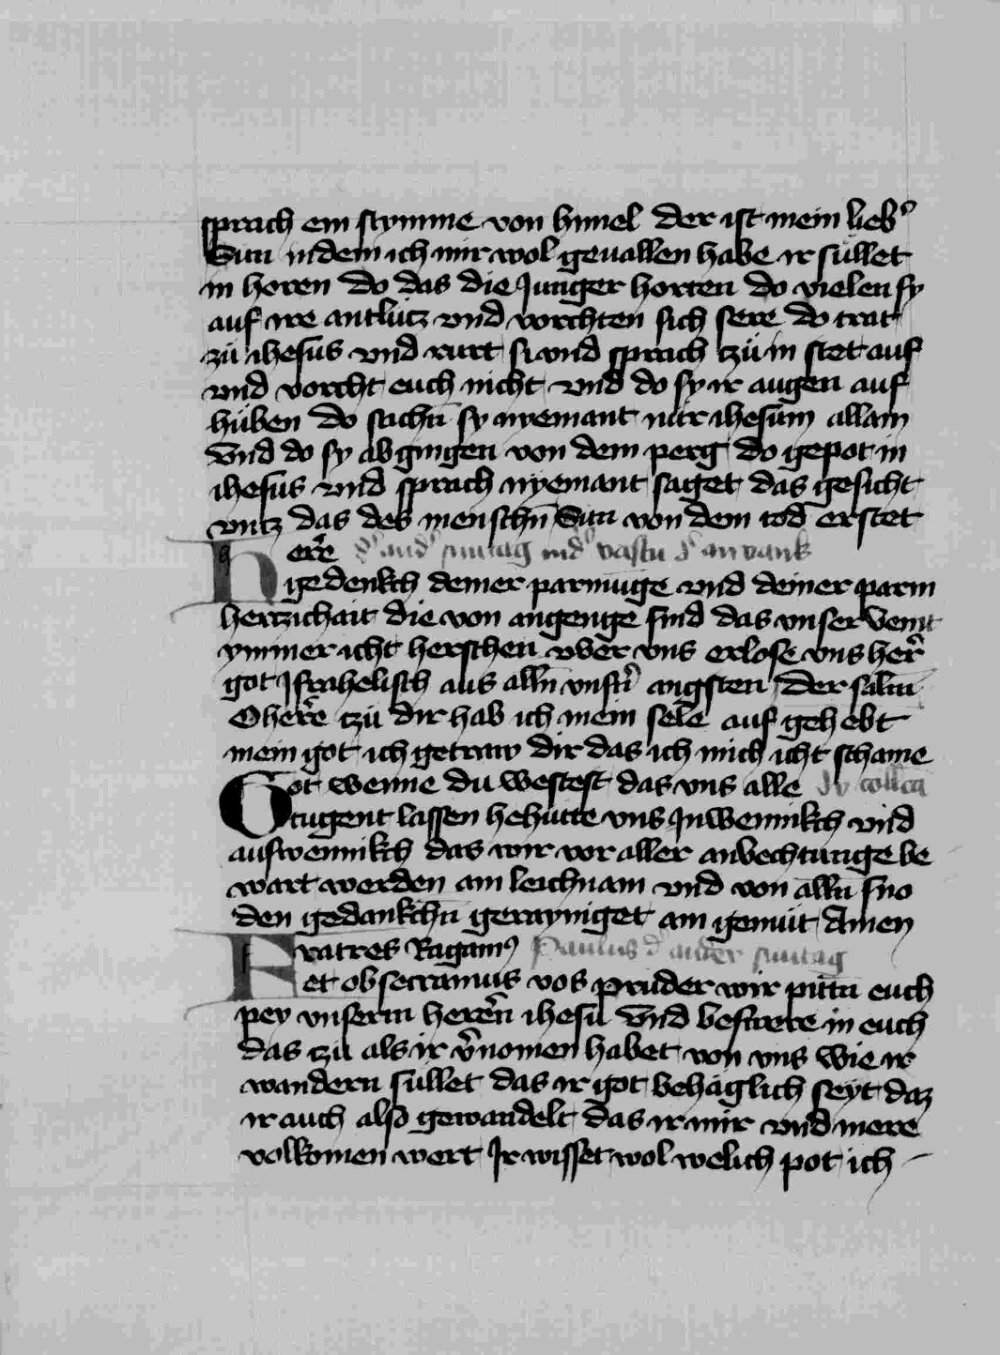 sprach ein stymme von himel der ist mein lieb᾽
Sun indem ich mir wol geuallen habe ir süllet
in horen do das die Junger horten do vielen sy
auf ire antlütz vnd vorchten sich sere do trat
zü ihesus vnd rurt si vnd sprach tzü in stet auf
vnd vorcht euch nicht vnd do sy ir augen auf
hüben do sachn̄ sy nyemant nür ihesum allain
Vnd do sy abgingen von dem perg do gepot in
ihesus vnd sprach nyemant saget das gesicht
vntz das des menschn̄ Sun von dem tod erstet
Herre d᾽ and᾽ suntag ind᾽ vastn d᾽ anvank
gedenkch deiner parmunge vnd deiner parm
hertzichait die von angenge sind das vnser veint
ymmer icht herschen vber vns erlose vns her᾽
got Jsrahelisch aus alln̄ vnsn̄ angsten Der salm
O herre tzü dir hab ich mein sele auf gehebt
mein got ich getraw dir das ich mich icht schame
Got wenne du westest das vns alle dy collcā
tugent lassen behütte vns Jnwennikch vnd
auswennikch das wir vor aller anvechtunge be
wart werden am leichnam vnd von alln̄ sno
den gedankchn̄ gerayniget am gemüt Amen
Fratres Rogam᾽ Paulus d᾽ ander suntag
et obsecramus vos prüder wir pittn̄ euch
pey vnserm heren̄ ihesu Vnd beswere in euch
das tzu als ir v᾽nomen habet von vns wie ir
wandern süllet das ir got behäglich seyt daz
ir auch also gewandelt das ir mir vnd mere
volkomen wert Jr wisset wol welich pot ich